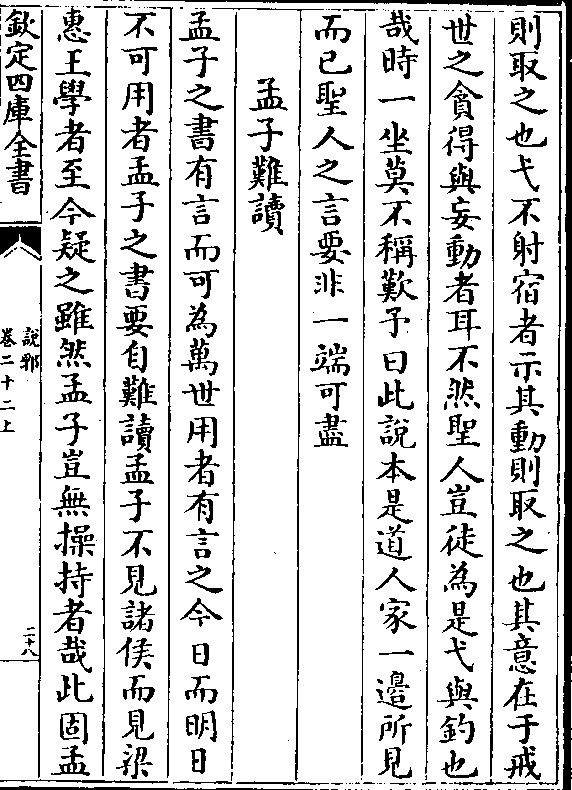 則取之也弋不射宿者示其動則取之也其意在于戒
世之貪得與妄動者耳不然聖人豈徒為是弋與釣也
哉時一坐莫不稱歎予曰此說本是道人家一邊所見
而已聖人之言要非一端可盡
孟子難讀
孟子之書有言而可為萬世用者有言之今日而明日
不可用者孟子之書要自難讀孟子不見諸侯而見梁
惠王學者至今疑之雖然孟子豈無操持者哉此固孟
欽定四庫全書
說郛
卷二十二上
二十八